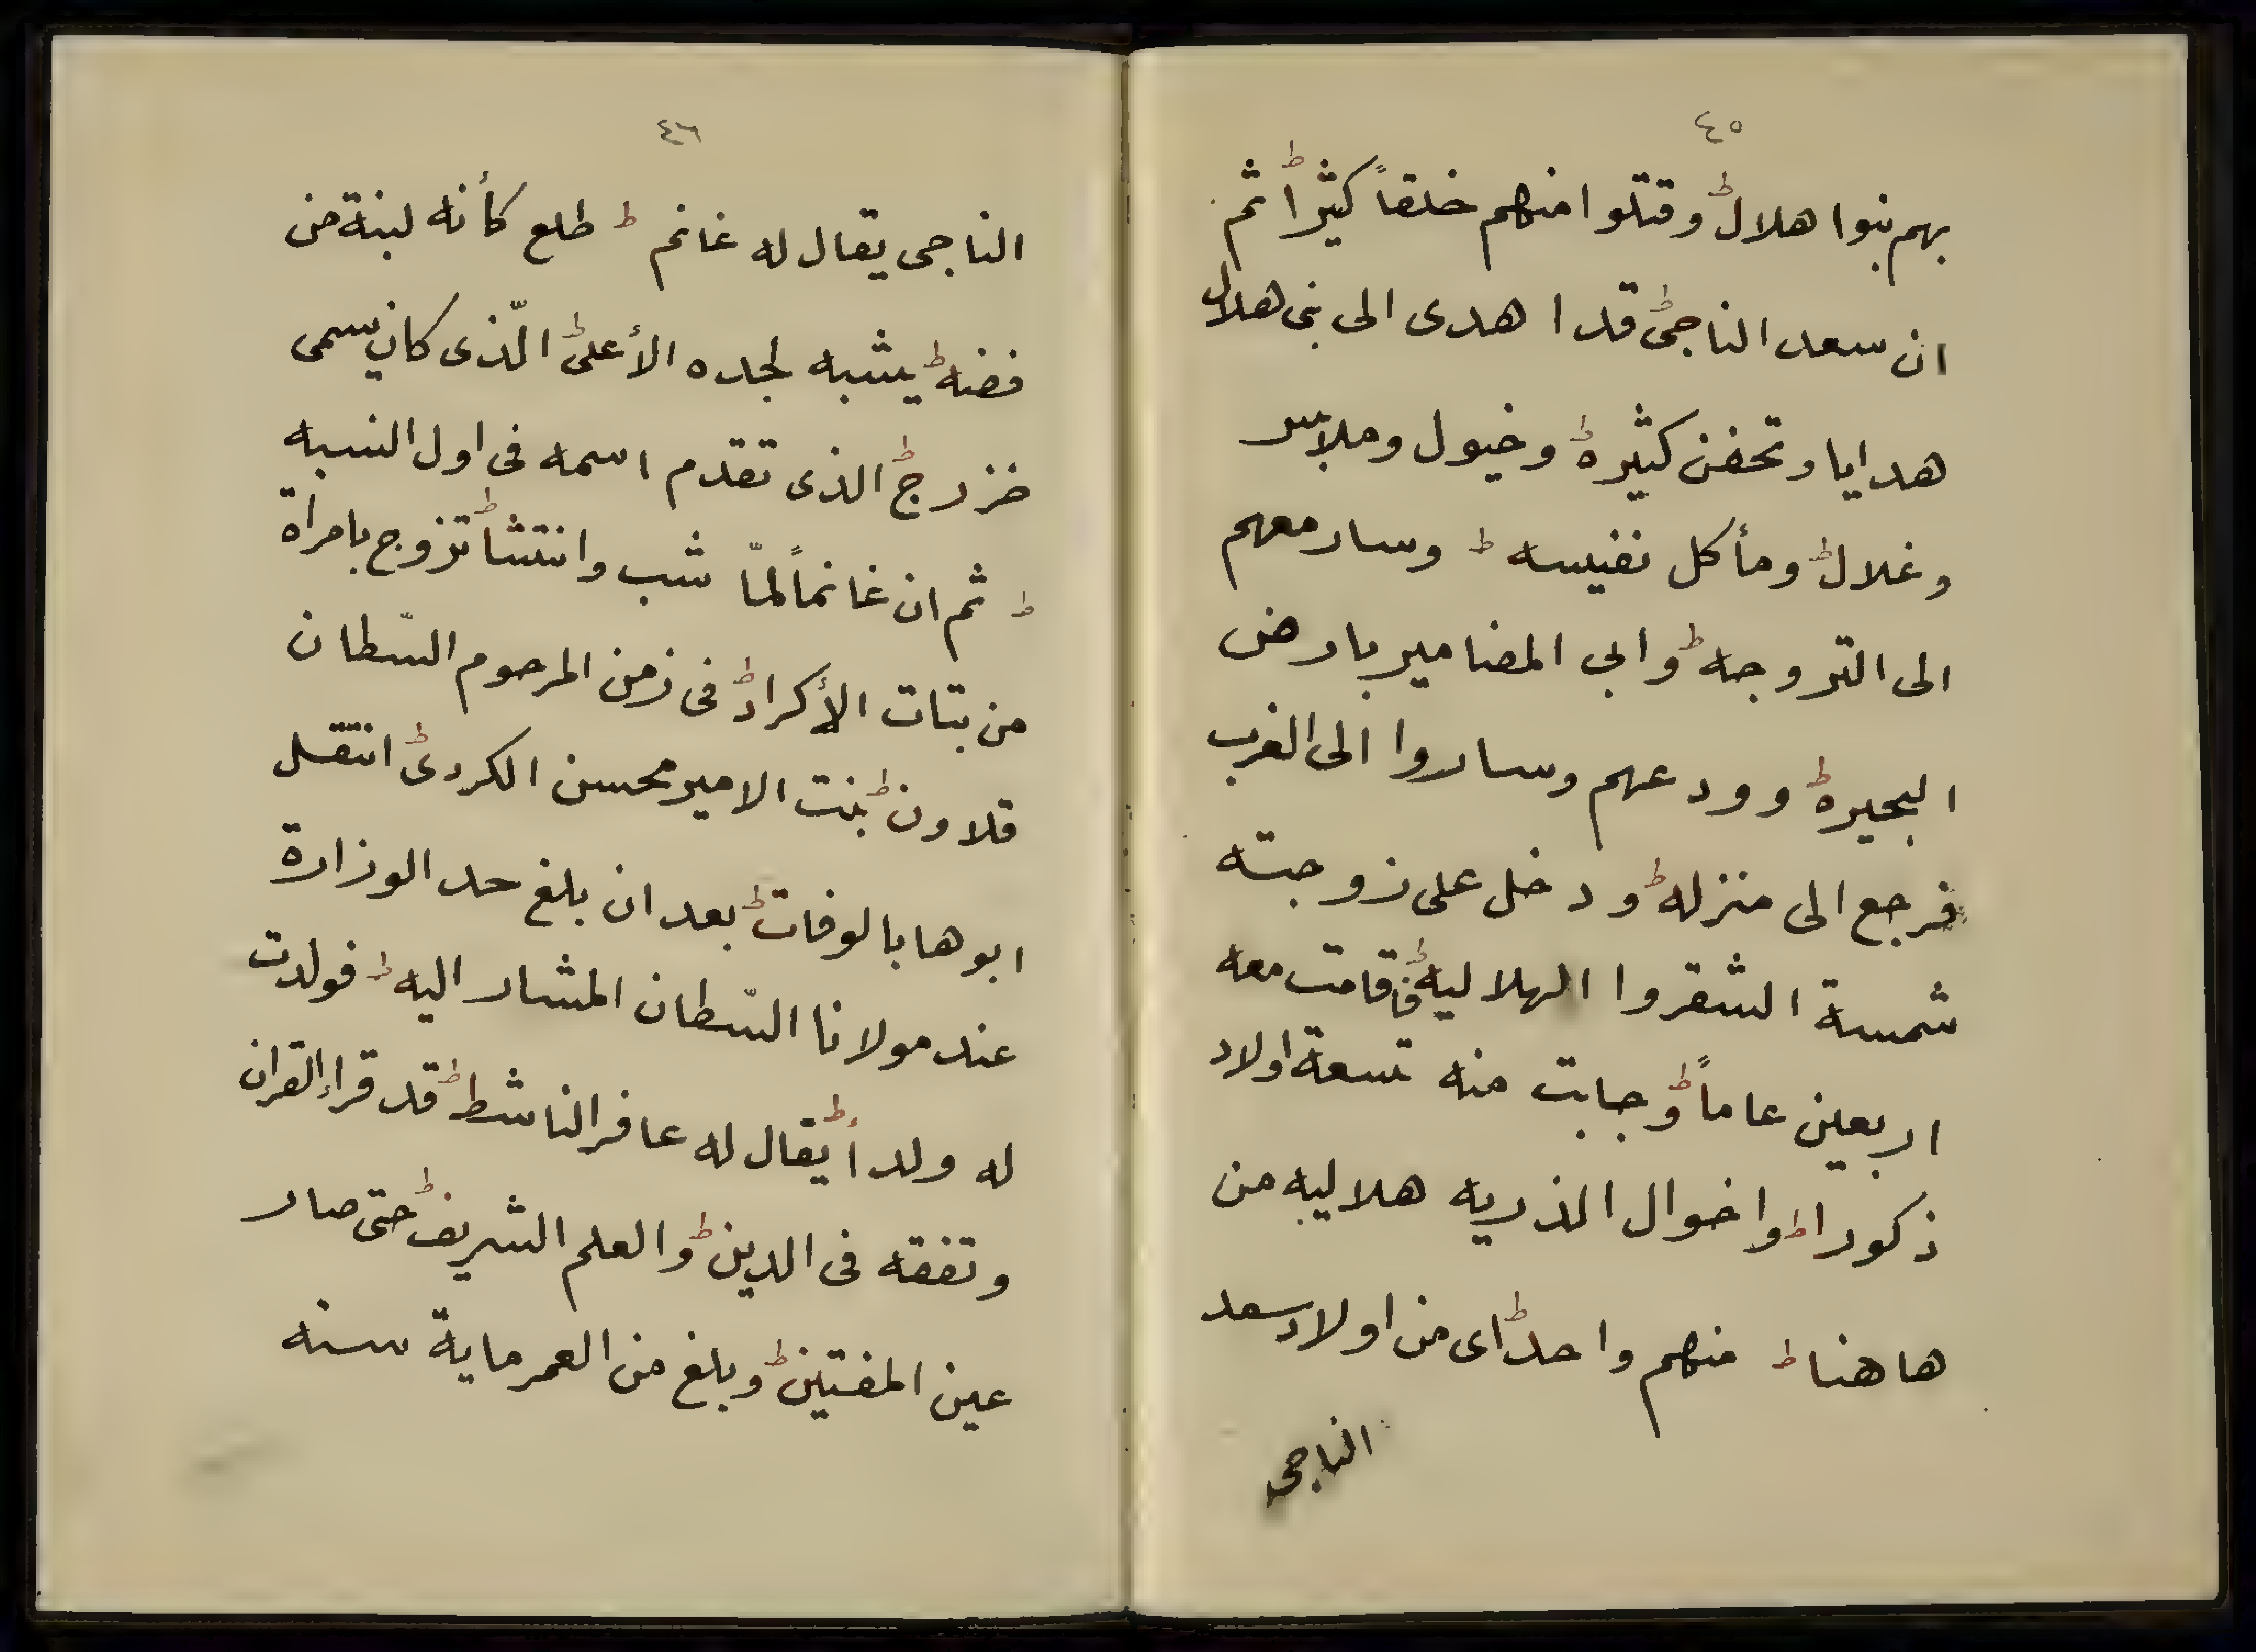 ٤٥
بهم بنوا هلال ط وقتلوا منهم خلقاً كثيراً ط ثم
ان سعد الناجى ط قد اهدى الى بنى هلال
هدايا وتحفن كثيرة ط وخيول وملابس
وغلال ط ومأكل نفيسه ط وسار معهم
الى التروجه ط وابى المضامير بارض
البحيرة ط وودعهم وساروا الى الغرب
فرجع الى منزله ط ودخل على زوجته
شمسة الشقروا الهلاليه ط فاقامت معه
اربعين عاماً ط وجابت منه تسعة اولاد
ذكورا ط واخوال الذريه هلاليه من
هاهنا ط منهم واحد ط اى من اولاد سعد
الناجى
٤٦
الناجى يقال له غانم ط طلع كأنه لبنة من
فضه ط يشبه لجده الأعلى ط الّذى كان يسمى
خزرج ط الذى تقدم اسمه فى اول النسبه
ط ثم ان غانماً لمّا شب وانتشا ط تزوج بامراة
من بتات الأكراد ط فى زمن المرحوم السّطان
قلاون ط بنت الامير محسن الكردى ط انتقل
ابوها بالوفات ط بعد ان بلغ حد الوزارة
عند مولانا السّطان المشار اليه ط فولدت
له ولداً ط يقال له عافر الناشط ط قد قراء القران
وتفقه فى الدين ط والعلم الشريف ط حتى صار
عين المفتين ط وبلغ من العمر ماية سنه